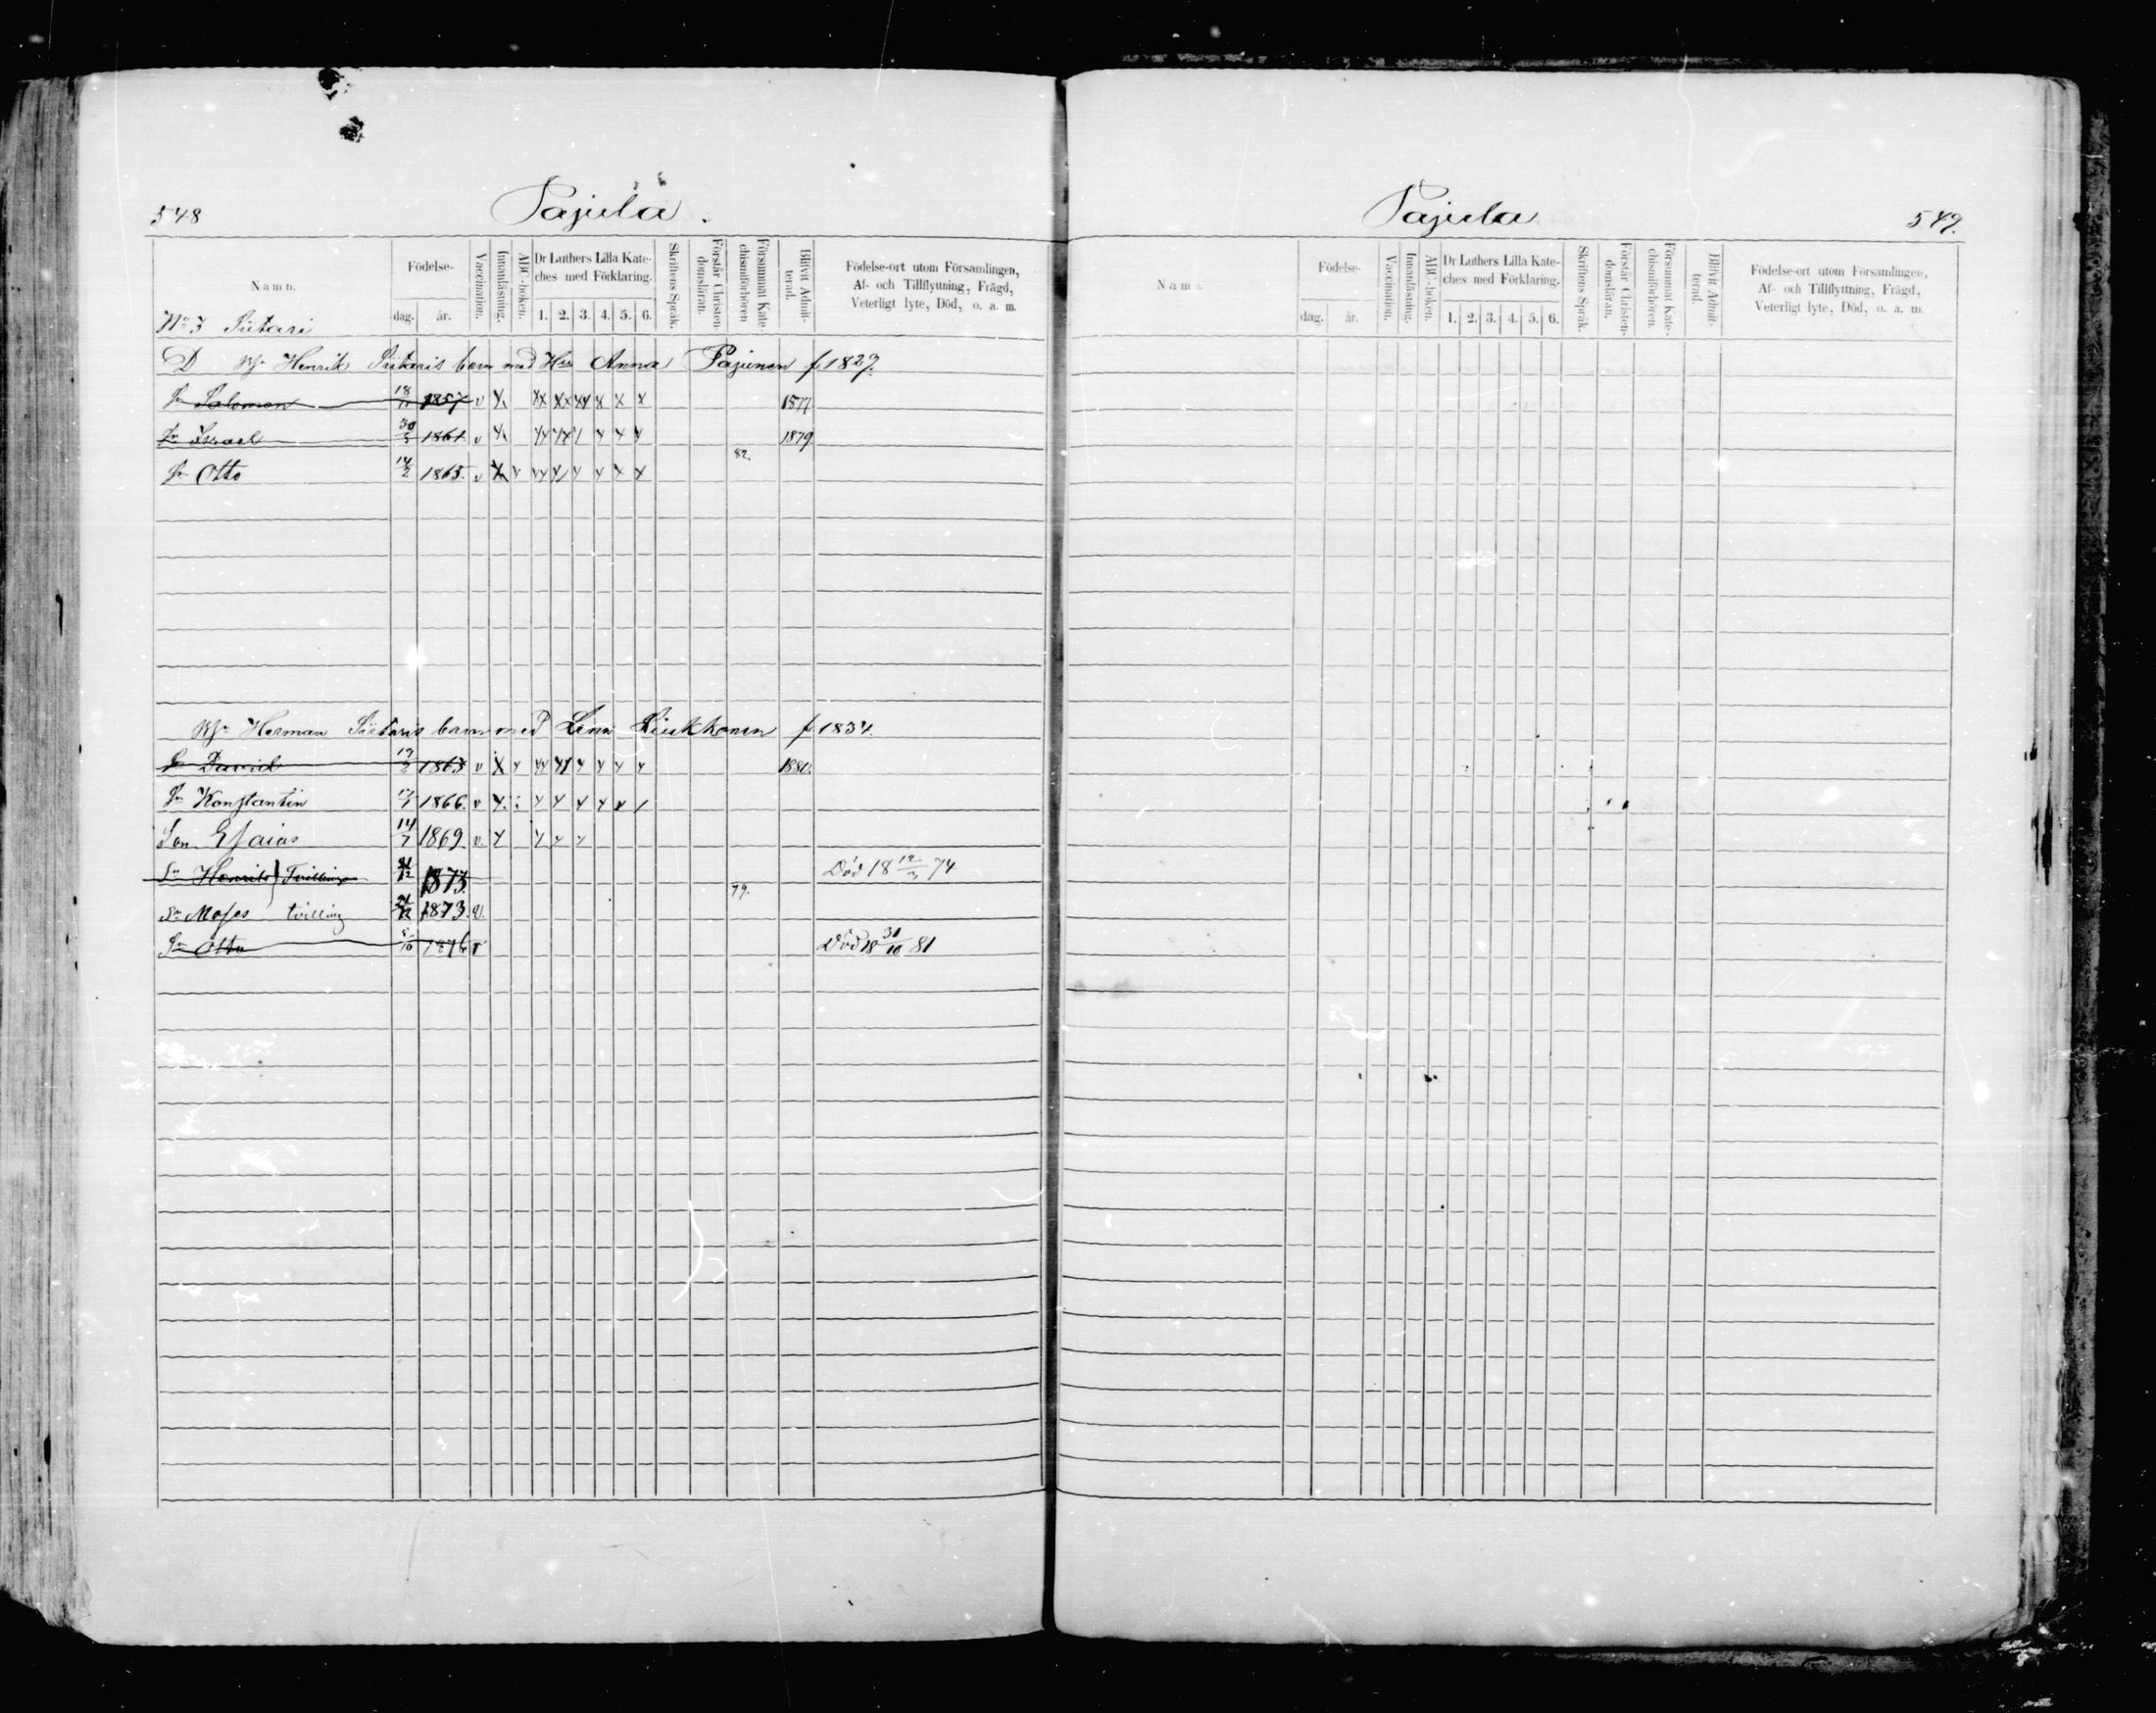 548 Pajula.
Namn. Födelse- dag. år. Vaccination. Innanläsning. ABC-boken. Dr Luthers Lilla Kateches med Förklaring. 1. 2. 3. 4. 5. 6. Skriftens Språk. Förstår Christendomsläran. Försummat Katechismiförhören Blifvit Admitterad. Födelse-ort utom Församlingen, Af- och Tillflyttning, Frägd, Veterligt lyte, Död, o. a. m.
No 3 Siitari
D Henrik Siitaris barn med Anna Pajunen f. 1829.
Sn Salomon 18/11 1857 v x xx xx xx x x x 1877.
Sn Israel 30/5 1861 v 1879
82.
Sn Otto 14/2 1865. v
Herman Siitaris barn med Lena Liukkonen f 1834.
Sn David 19/2 1863 v x 1880.
Sn Konstantin 1866. v
Son Esaias 14/7 1869 v.
Sn Henrik Tvilling 24/12 1873 Död 18 74
79.
Sn Moses tvilling 24/12 1873. v.
Sn Otto 5/10 1876 v Död 18 31/10 81
Pajula 549.
Namn. Födelse- dag. år. Vaccination. Innanläsning. ABC-boken. Dr Luthers Lilla Kateches med Förklaring. 1. 2. 3. 4. 5. 6. Skriftens Språk. Förstår Christendomsläran. Försummat Katechismiförhören. Blifvit Admitterad. Födelse-ort utom Församlingen, Af- och Tillflyttning, Frägd, Veterligt lyte, Död, o. a. m.